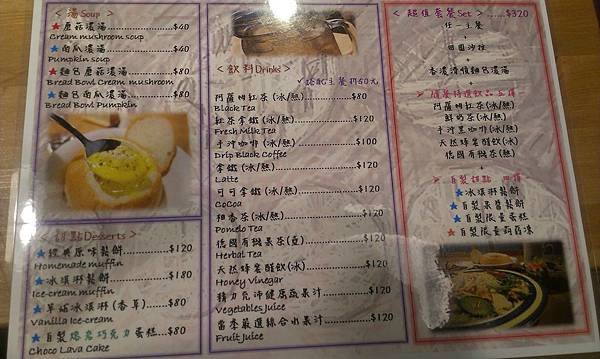 < 湯Soup >
★蘑菇濃湯............$40
Cream mushroom soup
★南瓜濃湯............$40
Pumpkin soup
★麵包蘑菇濃湯........$80
Bread Bowl Cream mushroom
★麵包南瓜濃湯........$80
Bread Bowl Pumpkin
< 甜點Desserts >
★經典原味鬆餅........$120
Homemade muffin
★冰淇淋鬆餅..........$180
Ice-cream muffin
★單球冰淇淋(香草)....$80
Vanilla Ice-cream
★自製熔岩巧克力蛋糕...$80
Choco Lava Cake
< 飲料Drinks >
阿薩姆紅茶(冰/熱)............$80
Black Tea
紅茶拿鐵(冰/熱)............$120
Fresh Milk Tea
手沖咖啡(冰/熱)............$100
Drip Black Coffee
拿鐵(冰/熱)............$120
Latte
可可拿鐵(冰/熱)............$120
CoCoa
柚香茶(冰/熱)............$120
Pomelo Tea
德國有機果茶(壺)............$120
Herbal Tea
天然蜂蜜醋飲(冰)............$120
Honey Vinegar
精力充沛健康蔬果汁............$120
Vegetables Juice
當季嚴選綜合水果汁............$120
Fruit Juice
< 超值套餐Set > ......$320
任一主餐
+
田園沙拉
+
香濃滑順麵包濃湯
+
▷ 隨餐特選飲品
阿薩姆紅茶(冰/熱)
鮮奶茶(冰/熱)
手沖黑咖啡(冰/熱)
天然蜂蜜醋飲(冰)
德國有機茶(熱)
+
▷ 自製甜點
★冰淇淋鬆餅
★自製果醬鬆餅
★自製限量蛋糕
★自製限量